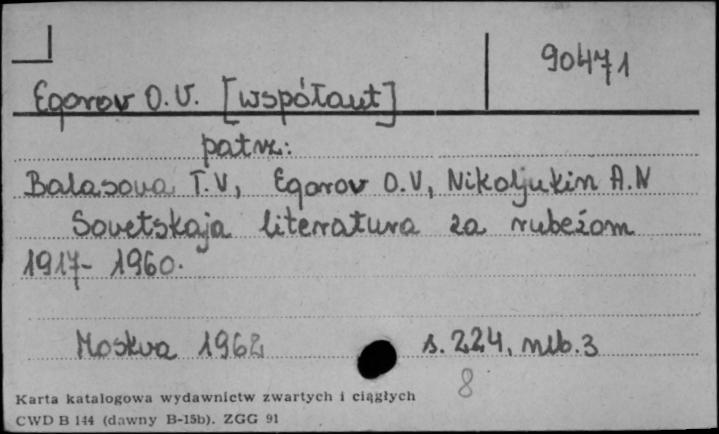 90471
Egorov O.V. [współaut]
patrz:
Balasova T.V, Egorov O.V, Nikoljukin A.N
Sovetskaja literatura za rubeżom
1917- 1960.
Moskva 1962 s. 224, nlb. 3
8
Karta katalogowa wydawnictw zwartych i ciągłych
CWD B 144 (dawny B-15b). ZGG 91